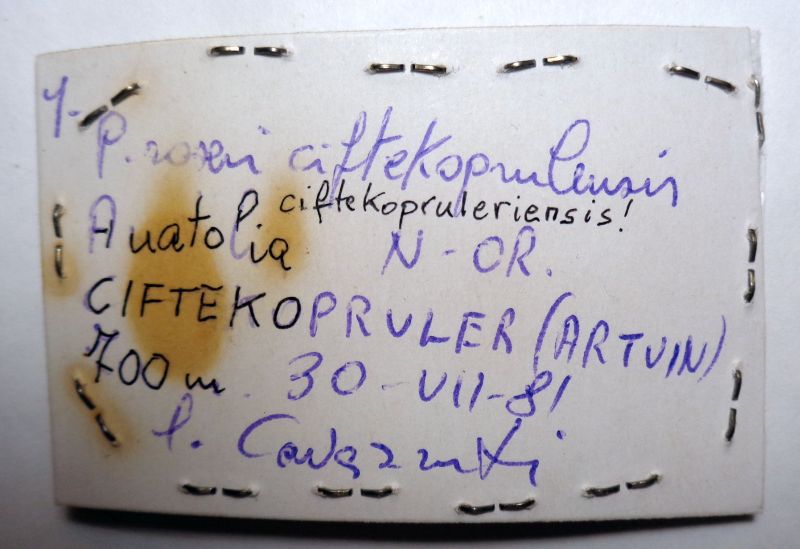 4. P. roseri ciftekoprulensis
ciftekopruleriensis!
Anatolia N-OR.
CIFTEKOPRULER (ARTVIN)
700 m. 30-VII-81
l. Cavazzuti